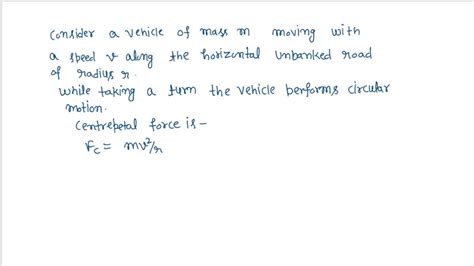 Consider a vehicle of mass m moving with
a speed v along the horizontal unbanked road
of radius r.
while taking a turn the vehicle performs circular
motion.
Centrepetal force is -
Fc = mv²/r